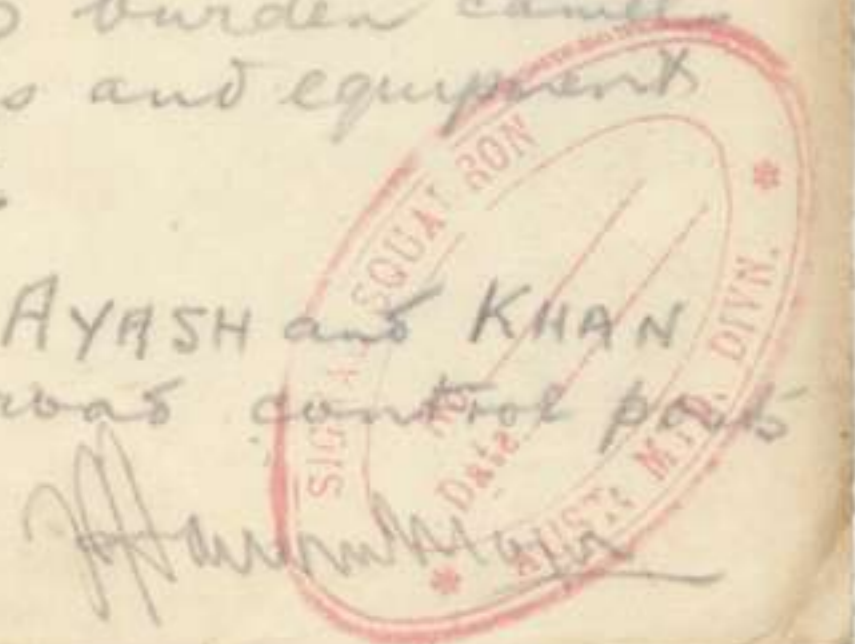 burden camels
and equipment
AYASH and KHAN
road control posts
SIGNAL SQUADRON
No.
Date
AUST. MTD. DIVN.